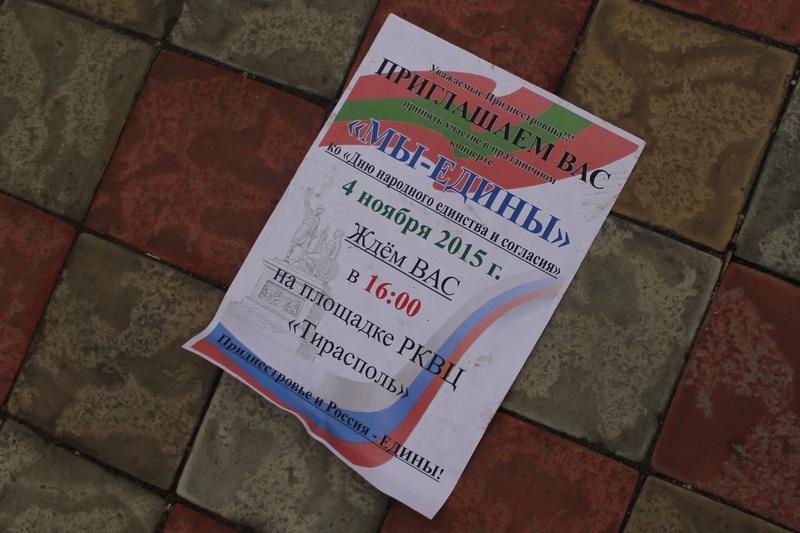 Уважаемые Приднестровцы!!!
ПРИГЛАШАЕМ ВАС
принять участие в праздничном
концерте
«МЫ-ЕДИНЫ»
ко «Дню народного единства и согласия»
4 ноября 2015 г.
Ждём ВАС
в 16:00
на площадке РКВЦ
«Тирасполь»
Приднестровье и Россия - ЕДИНЫ!